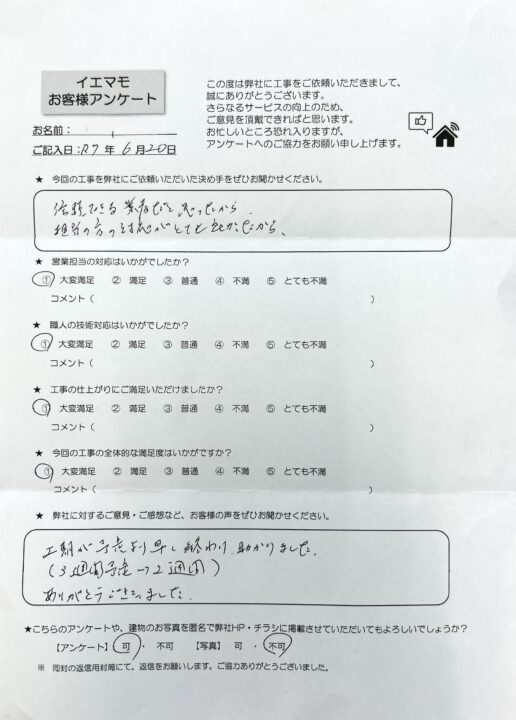 イエマモ
お客様アンケート
この度は弊社に工事をご依頼いただきまして、
誠にありがとうございます。
さらなるサービスの向上のため、
ご意見を頂戴できればと思います。
お忙しいところ恐れ入りますが、
アンケートへのご協力をお願い申し上げます。
お名前：
ご記入日：R7 年 6月20日
★ 今回の工事を弊社にご依頼いただいた決め手をぜひお聞かせください。
信頼できる業者だと思ったから
担当の方の対応がとても良かったから。
★ 営業担当の対応はいかがでしたか？
① 大変満足 ② 満足 ③ 普通 ④ 不満 ⑤ とても不満
コメント（ ）
★ 職人の技術対応はいかがでしたか？
① 大変満足 ② 満足 ③ 普通 ④ 不満 ⑤ とても不満
コメント（ ）
★ 工事の仕上がりにご満足いただけましたか？
① 大変満足 ② 満足 ③ 普通 ④ 不満 ⑤ とても不満
コメント（ ）
★ 今回の工事の全体的な満足度はいかがですか？
① 大変満足 ② 満足 ③ 普通 ④ 不満 ⑤ とても不満
コメント（ ）
★ 弊社に対するご意見・ご感想など、お客様の声をぜひお聞かせください。
工期が予定より早く終わり、助かりました。
（3週間予定→2週間）
ありがとうございました。
★こちらのアンケートや、建物のお写真を匿名で弊社HP・チラシに掲載させていただいてもよろしいでしょうか？
【アンケート】 可 ・ 不可 【写真】 可 ・ 不可
※ 同封の返信用封筒にて、返信をお願いします。ご協力ありがとうございました。